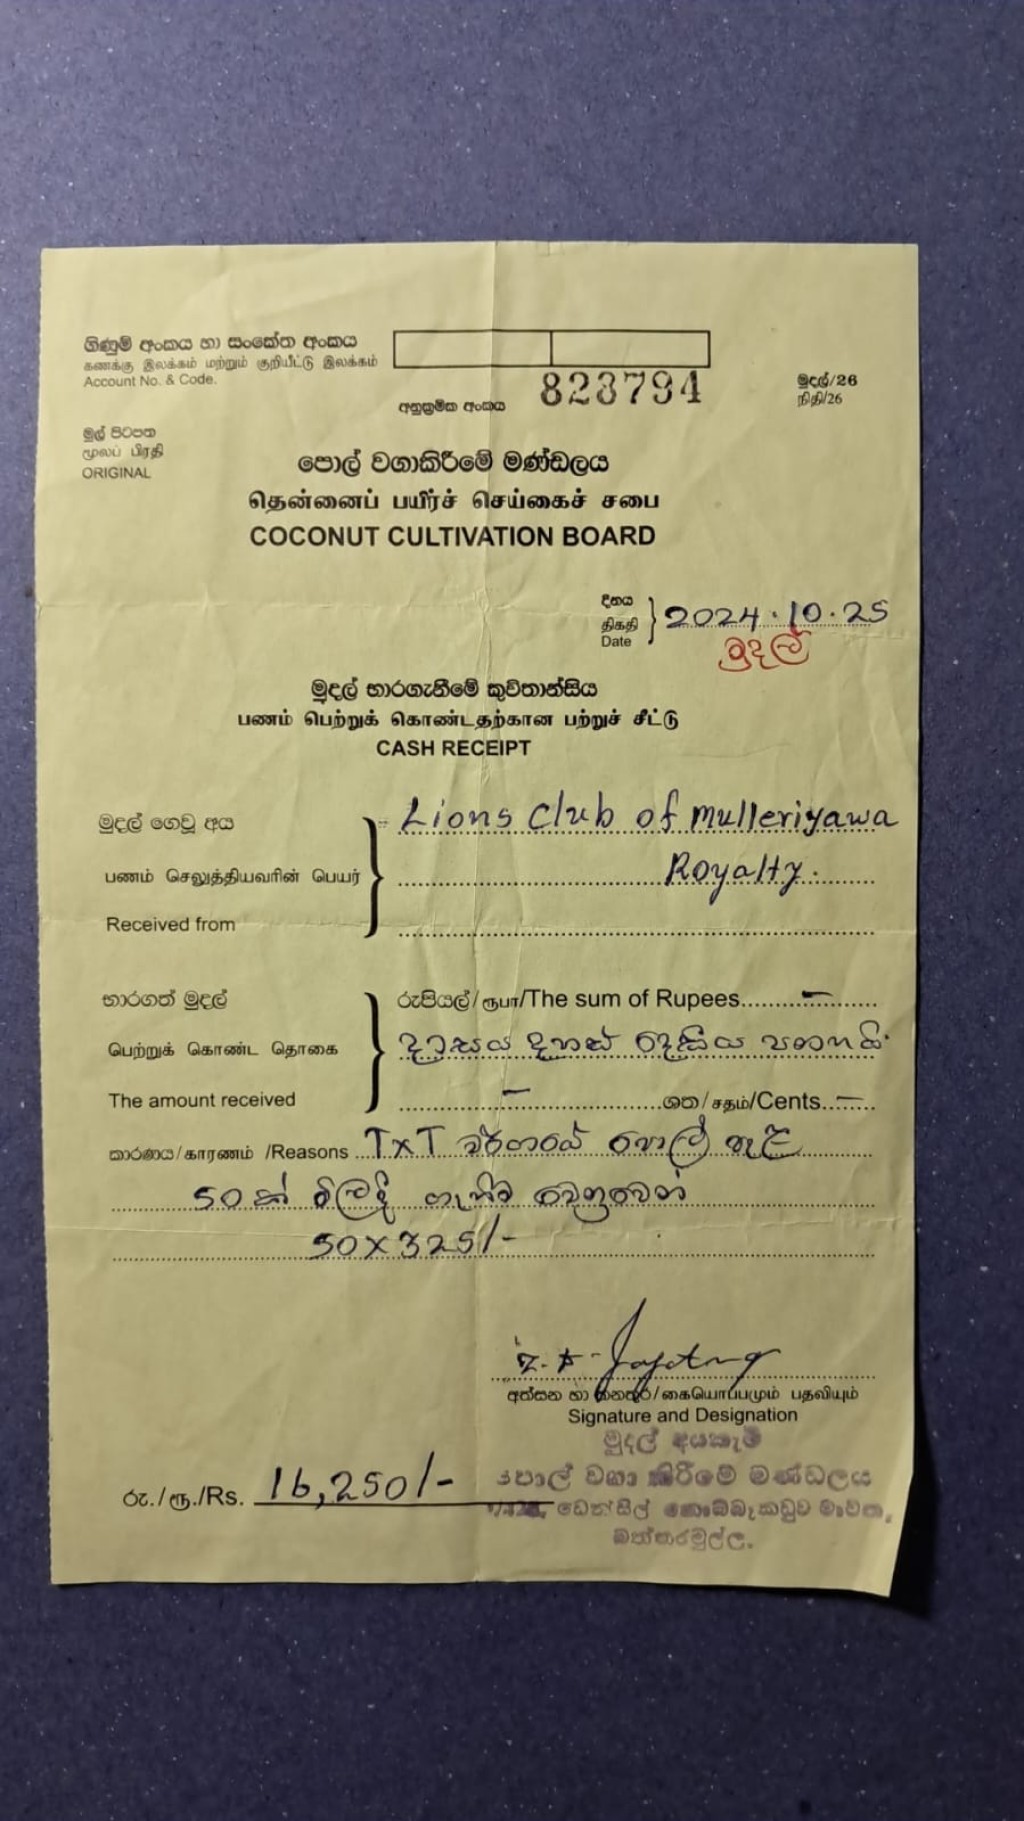 ගිණුම් අංකය හා සංකේත අංකය
கணக்கு இலக்கம் மற்றும் குறியீட்டு இலக்கம்
Account No. & Code.
අනුක්‍රමික අංකය 823794
මුදල්/26
நிதி/26
මුල් පිටපත
மூலப் பிரதி
ORIGINAL
පොල් වගාකිරීමේ මණ්ඩලය
தென்னைப் பயிர்ச் செய்கைச் சபை
COCONUT CULTIVATION BOARD
දිනය
திகதி
Date
2024.10.25
මුදල්
මුදල් භාරගැනීමේ කුවිතාන්සිය
பணம் பெற்றுக் கொண்டதற்கான பற்றுச் சீட்டு
CASH RECEIPT
මුදල් ගෙවූ අය
Lions Club of Mulleriyawa
பணம் செலுத்தியவரின் பெயர்
Royalty.
Received from
භාරගත් මුදල්
රුපියල්/ரூபா/The sum of Rupees –
பெற்றுக் கொண்ட தொகை
දාසය දහස් දෙසිය පනහයි
The amount received
– ශත/சதம்/Cents –
කාරණය/காரணம் /Reasons TxT වර්ගයේ පොල් පැළ
50ක් මිලදී ගැනීම වෙනුවෙන්
50x325/-
අත්සන හා තනතුර/கையொப்பமும் பதவியும்
Signature and Designation
මුදල් අයකැමි
පොල් වගා කිරීමේ මණ්ඩලය
ඩෙන්සිල් කොබ්බෑකඩුව මාවත,
බත්තරමුල්ල.
රු./ரூ./Rs. 16,250/-